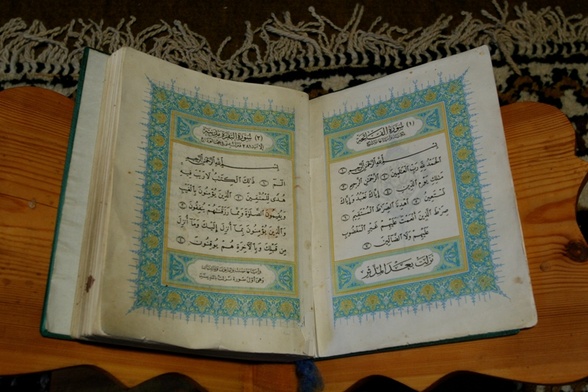 (١) سورة الفاتحة
بسم الله الرحمن الرحيم
الحمد لله رب العلمين الرحمن الرحيم
ملك يوم الدين إياك نعبد وإياك
نستعين اهدنا الصراط المستقيم
صراط الذين أنعمت عليهم غير المغضوب
عليهم ولا الضالين
نزلت بعد المدثر
(٢) سورة البقرة مدنية
بسم الله الرحمن الرحيم
الم ذلك الكتب لا ريب فيه
هدى للمتقين الذين يؤمنون بالغيب
ويقيمون الصلوة ومما رزقنهم ينفقون
والذين يؤمنون بما أنزل إليك وما أنزل
من قبلك وبالأخرة هم يوقنون
وآياتها مائتان وست وثمانون
وهي أول سورة نزلت بالمدينة